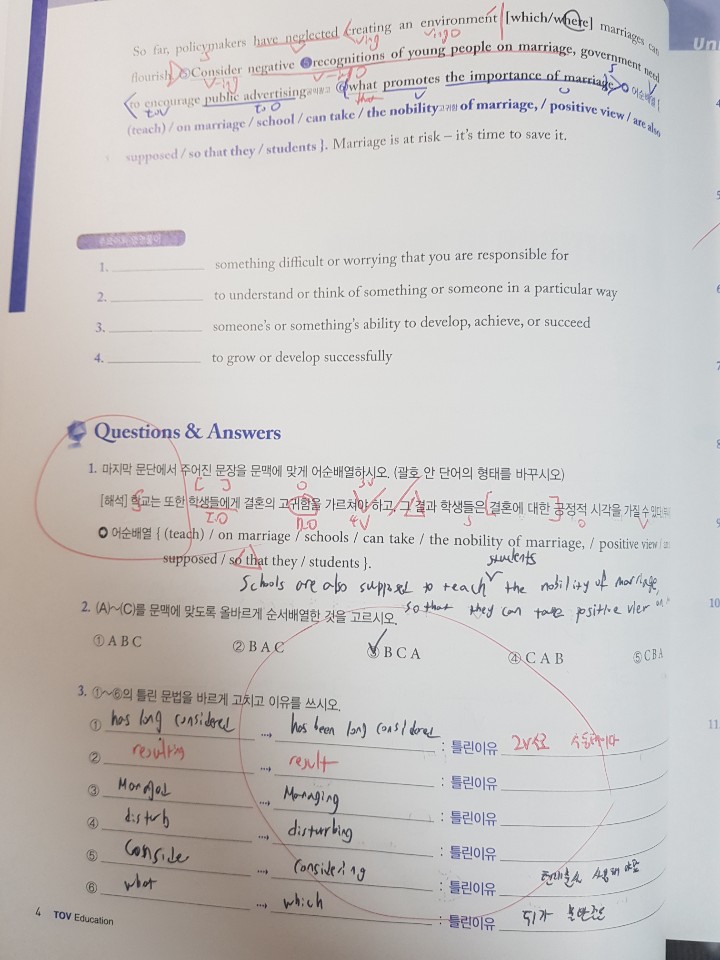 So far, policymakers have neglected creating an environment [which/where] marriages can
v-ing v-ing O
flourish. ⑤Consider negative recognitions of young people on marriage, government need
v-ing v-ing O
to encourage public advertising ⑥what promotes the importance of marriage. 어순배열 {
to v to O that
(teach) / on marriage / school / can take / the nobility고귀함 of marriage, / positive view / are also
supposed / so that they / students }. Marriage is at risk – it's time to save it.
1. something difficult or worrying that you are responsible for
2. to understand or think of something or someone in a particular way
3. someone's or something's ability to develop, achieve, or succeed
4. to grow or develop successfully
Questions & Answers
1. 마지막 문단에서 주어진 문장을 문맥에 맞게 어순배열하시오. (괄호 안 단어의 형태를 바꾸시오)
[해석] 학교는 또한 학생들에게 결혼의 고귀함을 가르쳐야 하고, 그 결과 학생들은 결혼에 대한 긍정적 시각을 가질 수 있다
S I.O D.O 4V S O V
어순배열 { (teach) / on marriage / schools / can take / the nobility of marriage, / positive view /
supposed / so that they / students }.
students
Schools are also supposed to teach the nobility of marriage,
so that they can take positive view
2. (A)~(C)를 문맥에 맞도록 올바르게 순서배열한 것을 고르시오.
① A B C ② B A C ③ B C A ④ C A B ⑤ C B A
3. ①~⑥의 틀린 문법을 바르게 고치고 이유를 쓰시오.
① has long considered ⋯→ has been long considered : 틀린이유
② resulting ⋯→ result : 틀린이유
③ Managed ⋯→ Managing : 틀린이유
④ disturb ⋯→ disturbing : 틀린이유
⑤ Conside ⋯→ Considering : 틀린이유
⑥ what ⋯→ which : 틀린이유 뒤가 불완전
4 TOV Education